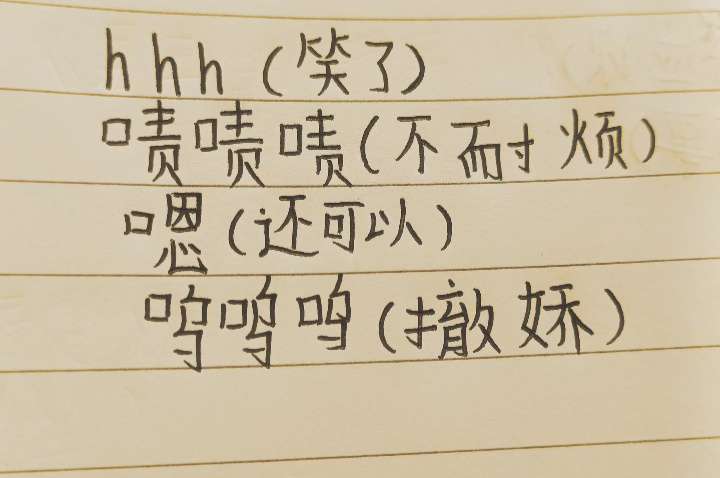 hhh(笑了)
啧啧啧(不耐烦)
嗯(还可以)
呜呜呜(撒娇)